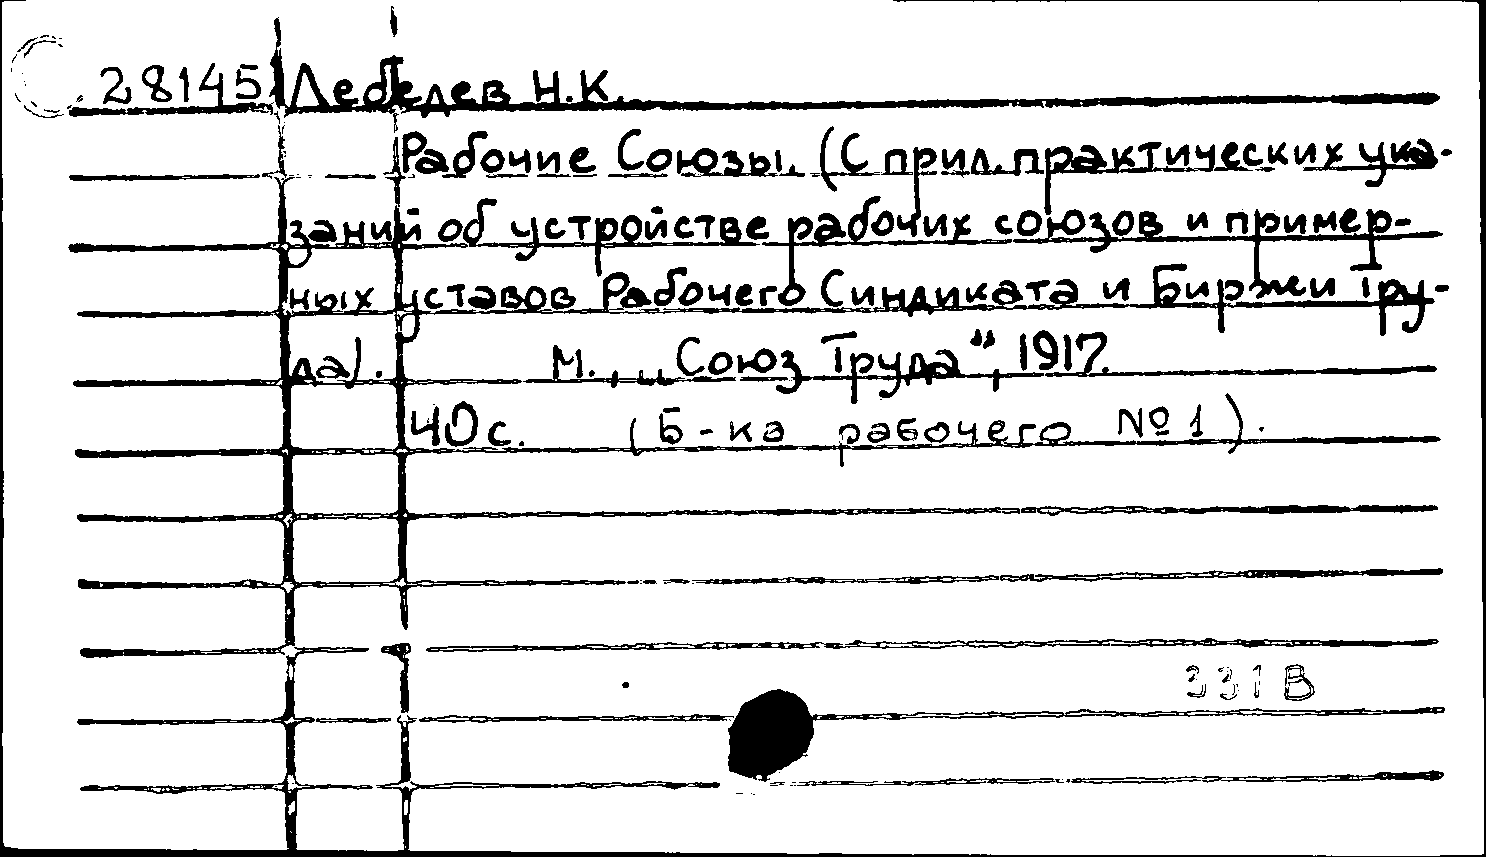 28145 Лебедев Н.К.
Рабочие Союзы. (С прил. практических ука-
заний об устройстве рабочих союзов и пример-
ных уставов Рабочего Синдиката и Биржи Тру-
да). М., „Союз Труда“, 1917.
40 с. (Б-ка рабочего № 1).
331В